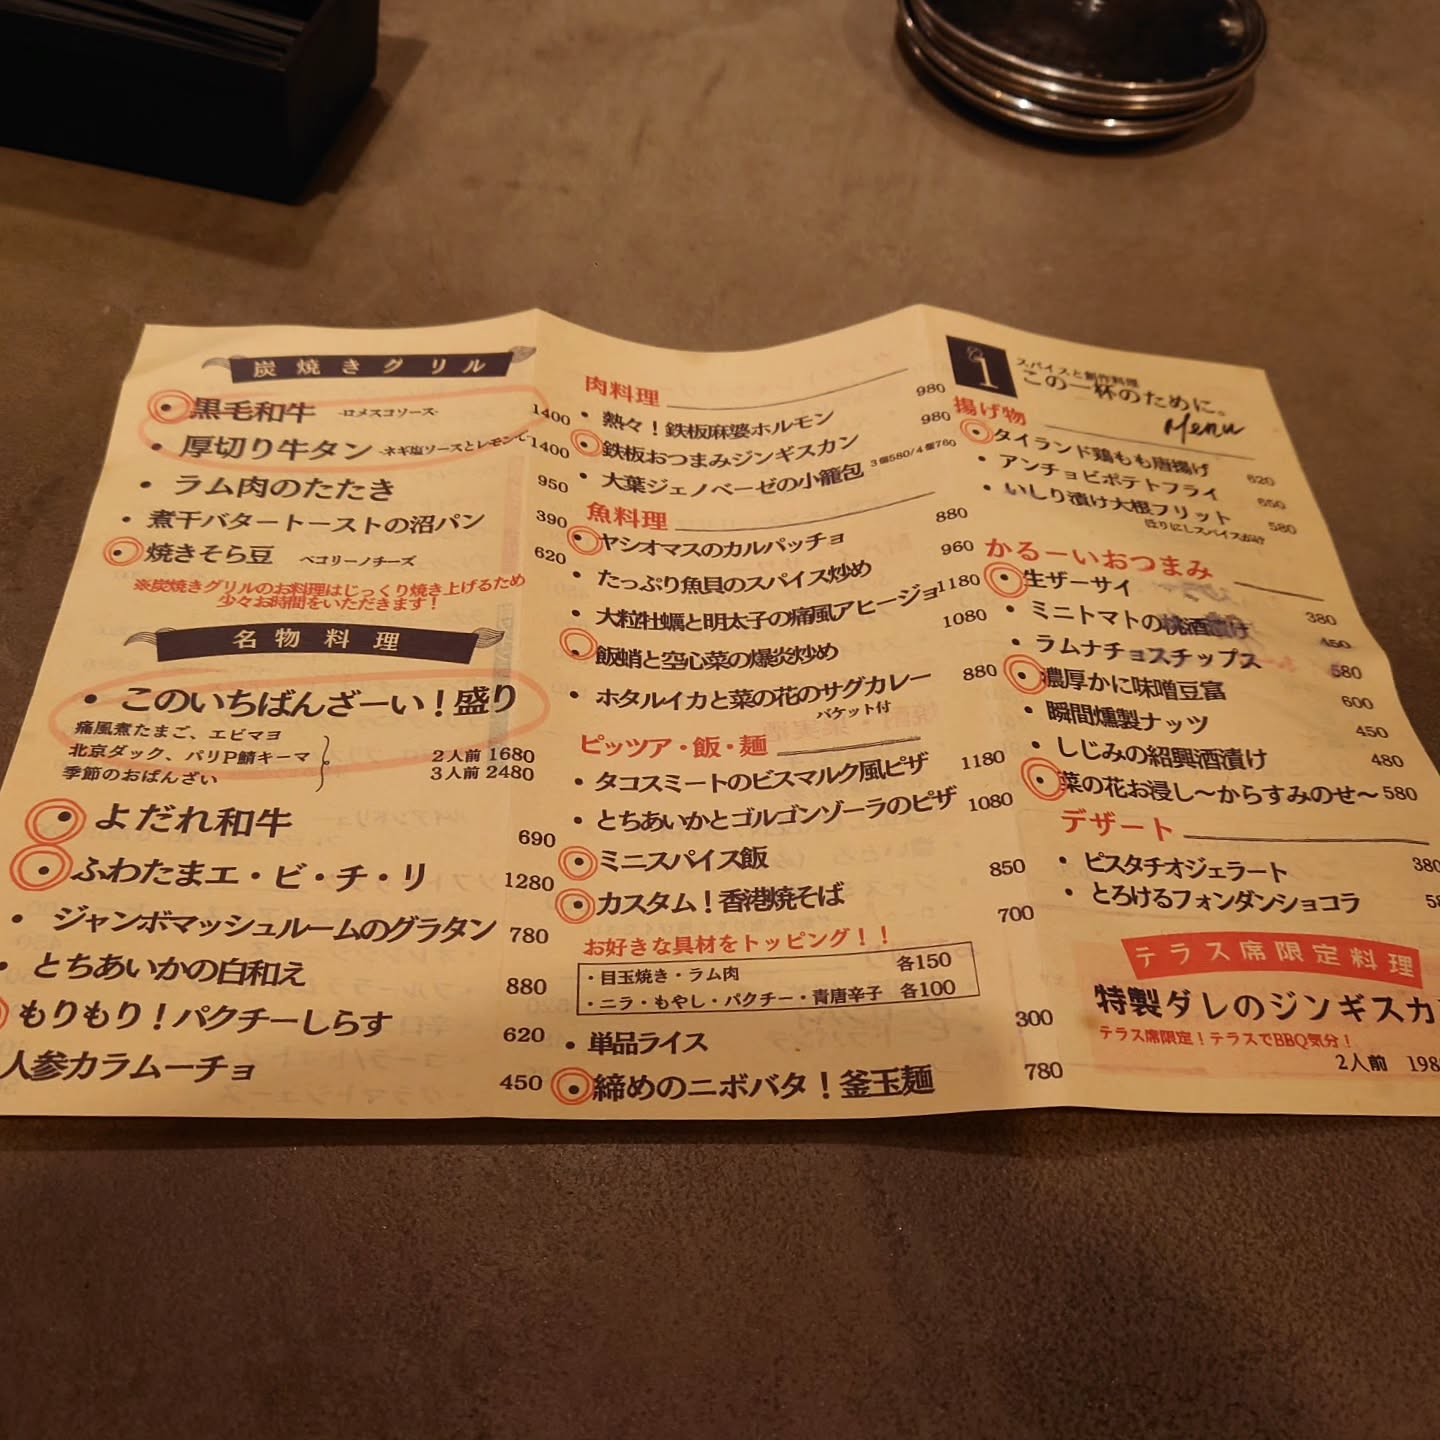 炭焼きグリル
・黒毛和牛 -ロメスコソース- 1400
・厚切り牛タン -ネギ塩ソースとレモンで 1400
・ラム肉のたたき 950
・煮干バタートーストの沼パン 390
・焼きそら豆 ペコリーノチーズ 620
※炭焼きグリルのお料理はじっくり焼き上げるため
少々お時間をいただきます！
名物料理
・このいちばんざーい！盛り
痛風煮たまご、エビマヨ
北京ダック、パリP鯖キーマ 2人前 1680
季節のおばんざい 3人前 2480
・よだれ和牛 690
・ふわたまエ・ビ・チ・リ 1280
・ジャンボマッシュルームのグラタン 780
・とちあいかの白和え 880
もりもり！パクチーしらす 620
人参カラムーチョ 450
肉料理
・熱々！鉄板麻婆ホルモン 980
・鉄板おつまみジンギスカン 980
・大葉ジェノベーゼの小籠包 3個580/4個760
魚料理
・ヤシオマスのカルパッチョ 880
・たっぷり魚貝のスパイス炒め 960
・大粒牡蠣と明太子の痛風アヒージョ 1180
・飯蛸と空心菜の爆炎炒め 1080
・ホタルイカと菜の花のサグカレー 880
バケット付
ピッツア・飯・麺
・タコスミートのビスマルク風ピザ 1180
・とちあいかとゴルゴンゾーラのピザ 1080
・ミニスパイス飯 850
・カスタム！香港焼そば 700
お好きな具材をトッピング！！
・目玉焼き・ラム肉 各150
・ニラ・もやし・パクチー・青唐辛子 各100
・単品ライス 300
・締めのニボバタ！釜玉麺 780
1
スパイスと創作料理
この一杯のために。
Menu
揚げ物
・タイランド鶏もも唐揚げ 620
・アンチョビポテトフライ 650
・いしり漬け大根フリット 580
ほりにしスパイスがけ
かるーいおつまみ
・生ザーサイ 380
・ミニトマトの桃酒漬け 450
・ラムナチョスチップス 580
・濃厚かに味噌豆富 600
・瞬間燻製ナッツ 450
・しじみの紹興酒漬け 480
・菜の花お浸し～からすみのせ～ 580
デザート
・ピスタチオジェラート 380
・とろけるフォンダンショコラ
テラス席限定料理
特製ダレのジンギスカ
テラス席限定！テラスでBBQ気分！
2人前 198